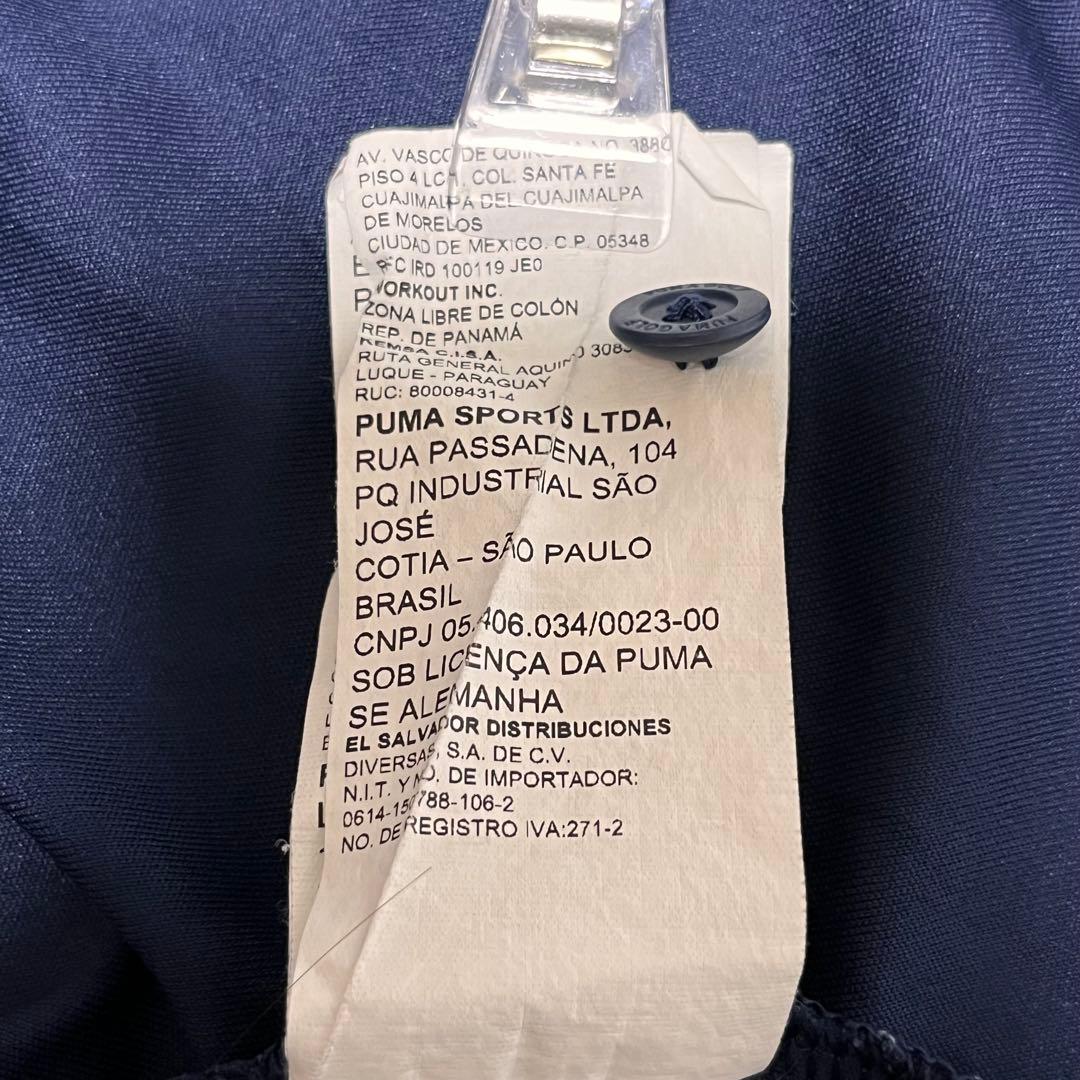 AV. VASCO DE QUIROGA NO. 3880
PISO 4 LC-1, COL. SANTA FE
CUAJIMALPA DEL CUAJIMALPA
DE MORELOS
CIUDAD DE MEXICO. C.P. 05348
RFC IRD 100119 JE0
WORKOUT INC.
ZONA LIBRE DE COLÓN
REP. DE PANAMÁ
REMSA C.I.S.A.
RUTA GENERAL AQUINO 308
LUQUE - PARAGUAY
RUC: 80008431-4
PUMA SPORTS LTDA,
RUA PASSADENA, 104
PQ INDUSTRIAL SÃO
JOSÉ
COTIA – SÃO PAULO
BRASIL
CNPJ 05.406.034/0023-00
SOB LICENÇA DA PUMA
SE ALEMANHA
EL SALVADOR DISTRIBUCIONES
DIVERSAS, S.A. DE C.V.
N.I.T. Y NO. DE IMPORTADOR:
0614-150788-106-2
NO. DE REGISTRO IVA:271-2
PUMA GOLF